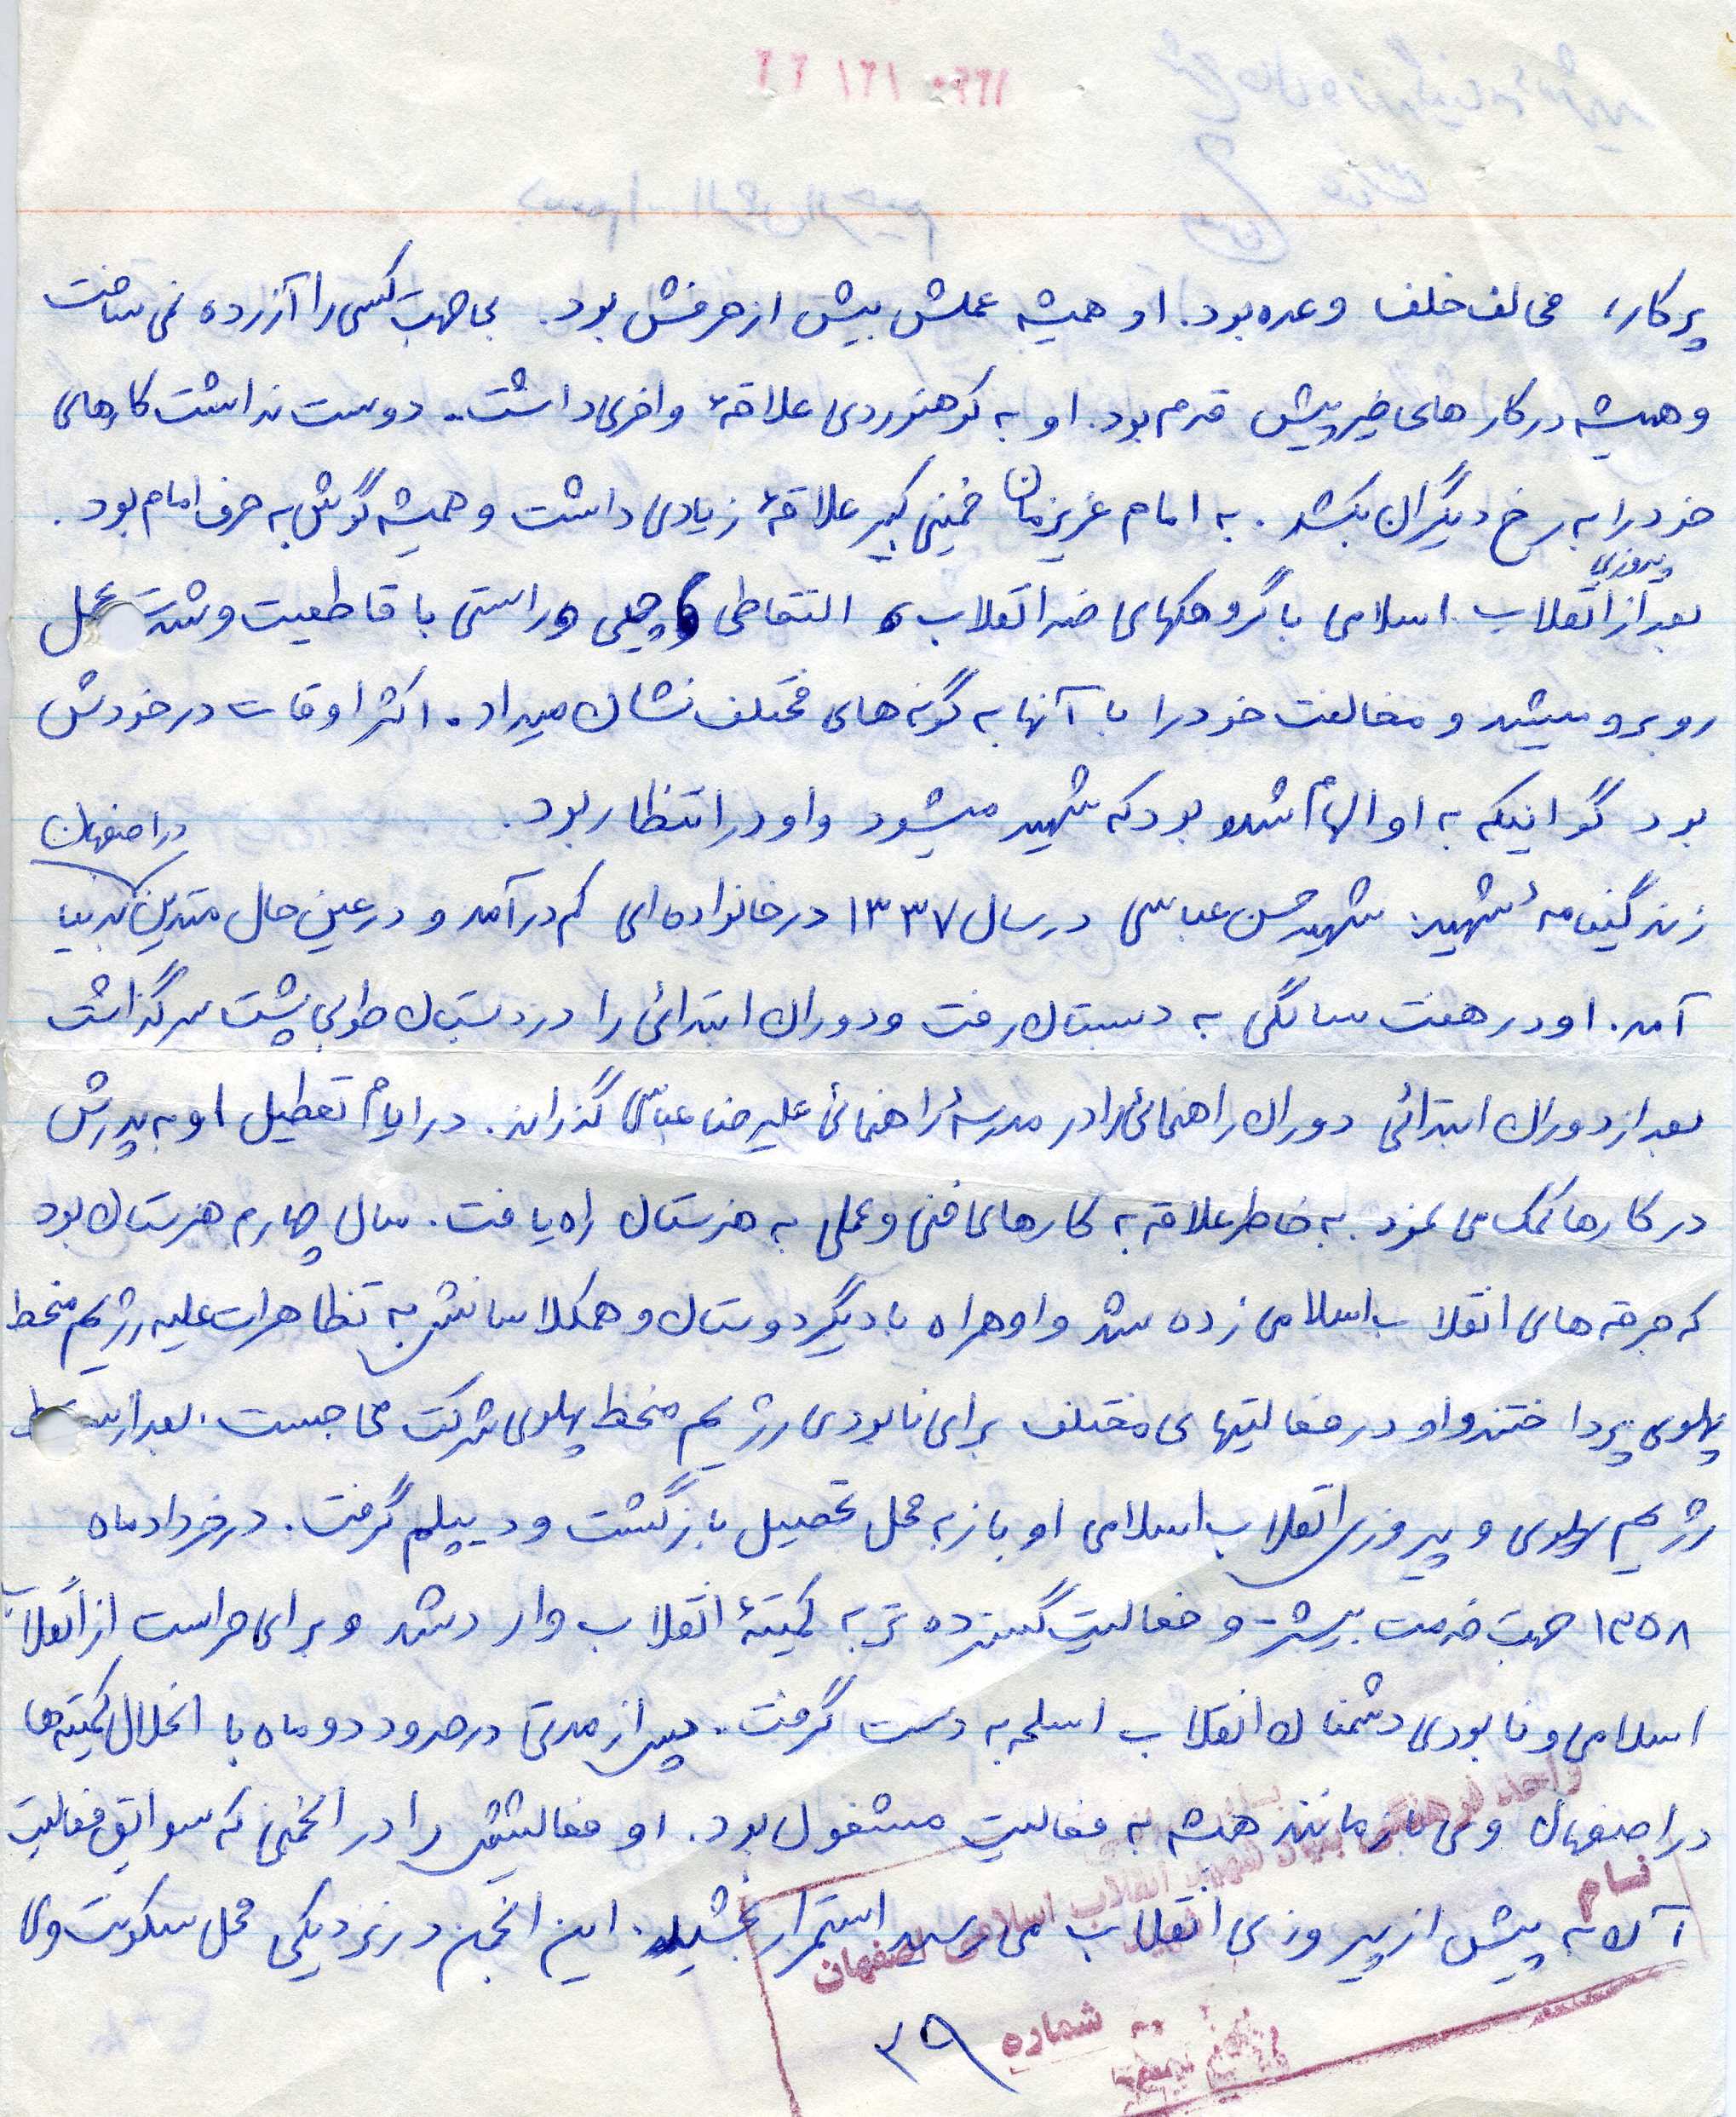 پرکار، مخالف خلف وعده بود. او همیشه عملش بیش از حرفش بود. بی جهت کسی را آزرده نمی ساخت
و همیشه در کارهای خیر پیش قدم بود. او به کوهنوردی علاقهٔ وافری داشت. دوست نداشت کارهای
خود را به رخ دیگران بکشد. به امام عزیزمان خمینی کبیر علاقهٔ زیادی داشت و همیشه گوش به حرف امام بود.
بعد از پیروزی انقلاب اسلامی با گروهکهای ضد انقلاب و التقاطی و چپی و راستی با قاطعیت و شدت عمل
روبرو میشد و مخالفت خود را با آنها به گونه های مختلف نشان میداد. اکثر اوقات در خودش
بود گو اینکه به او الهام شده بود که شهید میشود و او در انتظار بود.
در اصفهان
زندگینامهٔ شهید: شهید حسن عباسی در سال ۱۳۳۷ در خانواده ای کم درآمد و در عین حال متدین بدنیا
آمد. او در هفت سالگی به دبستان رفت و دوران ابتدائی را در دبستان طوبی پشت سر گذاشت
بعد از دوران ابتدائی دوران راهنمائی را در مدرسهٔ راهنمائی علیرضا عباسی گذراند. در ایام تعطیل او به پدرش
در کارها کمک می نمود. به خاطر علاقه به کارهای فنی و عملی به هنرستان راه یافت. سال چهارم هنرستان بود
که جرقه های انقلاب اسلامی زده شد و او همراه با دیگر دوستان و همکلاسانش به تظاهرات علیه رژیم منحط
پهلوی پرداختند و او در فعالیتهای مختلف برای نابودی رژیم منحط پهلوی شرکت می جست. بعد از سقوط
رژیم پهلوی و پیروزی انقلاب اسلامی او باز به محل تحصیل بازگشت و دیپلم گرفت. در خرداد ماه
۱۳۵۸ جهت خدمت بیشتر و فعالیت گسترده تر به کمیتهٔ انقلاب وارد شد و برای حراست از انقلاب
اسلامی و نابودی دشمنان انقلاب اسلحه به دست گرفت. پس از مدتی در حدود دو ماه با انحلال کمیته ها
در اصفهان وی باز مانند همیشه به فعالیت مشغول بود. او فعالیتش را در انجمنی که سوابق فعالیت
آن به پیش از پیروزی انقلاب می رسید استمرار بخشید. این انجمن در نزدیکی محل سکونت وی
واحد فرهنگی بنیاد شهید انقلاب اسلامی اصفهان
شماره ۳۹